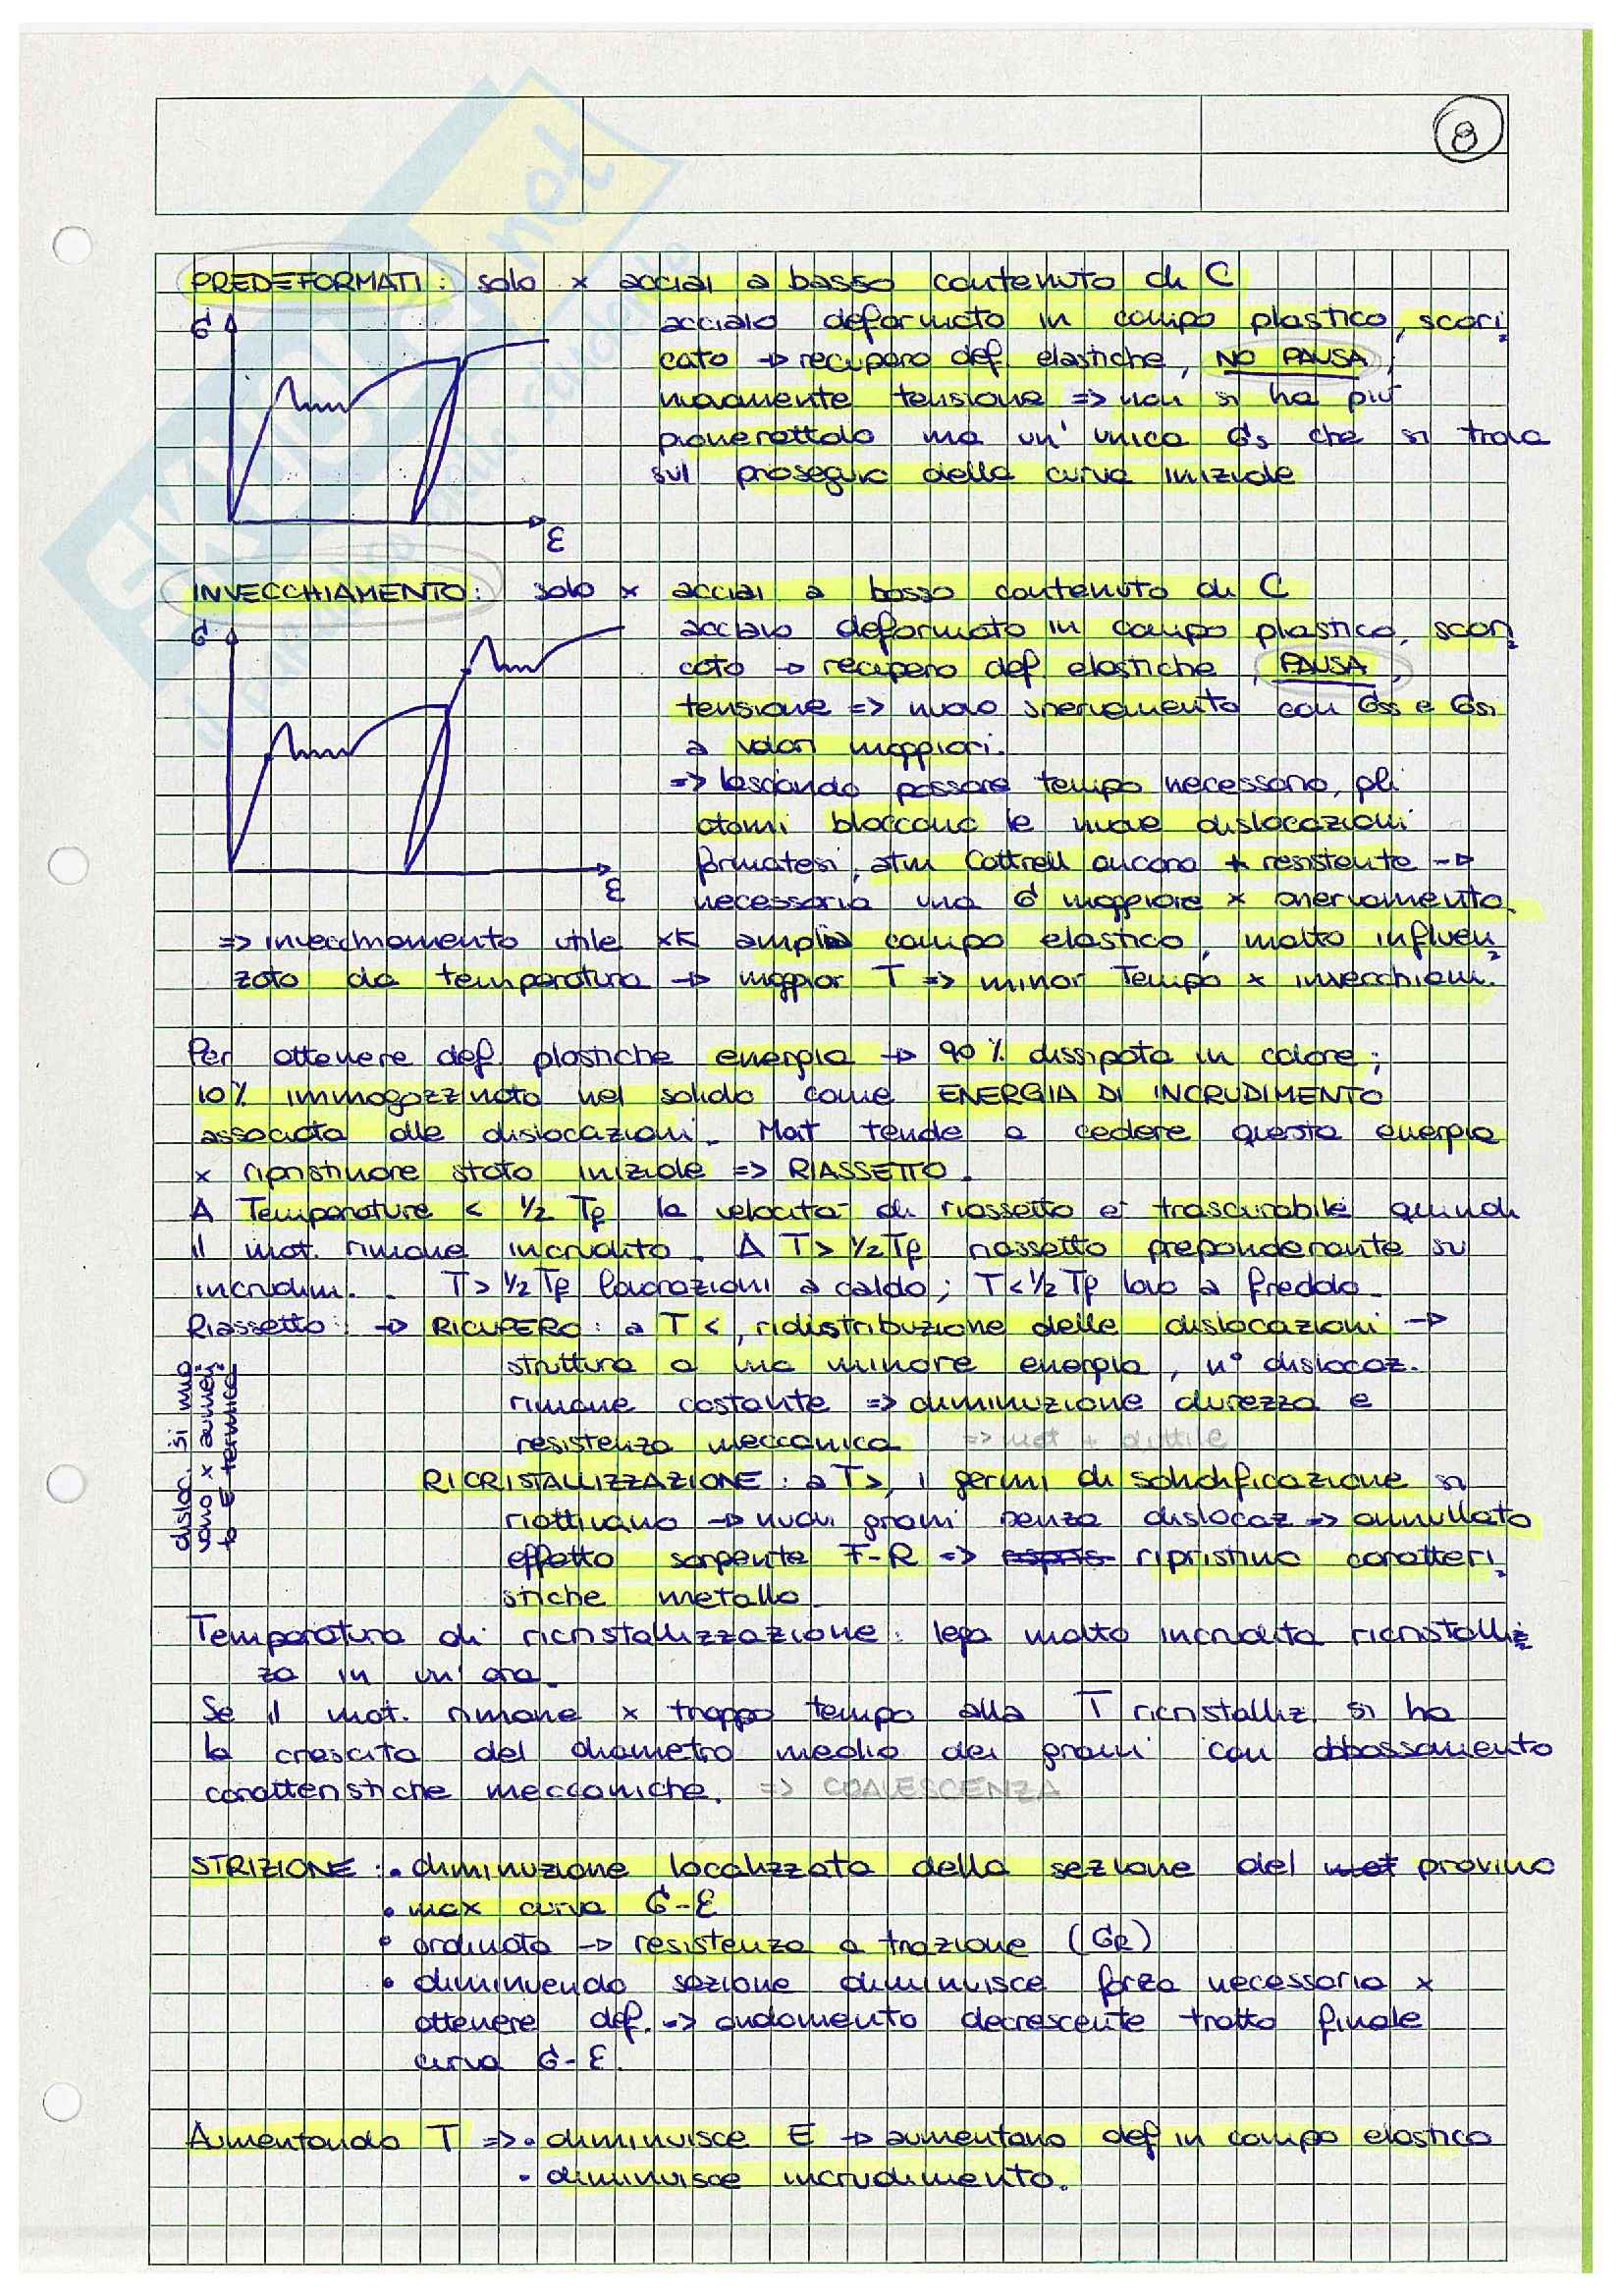 8
PREDEFORMATI: solo x acciai a basso contenuto di C
σ
acciaio deformato in campo plastico, scari
cato → recupero def. elastiche, NO PAUSA,
nuovamente tensione => non si ha più
pianerottolo ma un' unica σs che si trova
sul proseguo della curva iniziale
ε
INVECCHIAMENTO: solo x acciai a basso contenuto di C
σ
acciaio deformato in campo plastico, scari
cato → recupero def. elastiche, PAUSA,
tensione => nuovo snervamento con σss e σsi
a valori maggiori.
=> lasciando passare tempo necessario, gli
atomi bloccano le nuove dislocazioni
formatesi, atm Cottrell ancora + resistente →
ε
necessaria una σ maggiore x snervamento.
=> invecchiamento utile xk amplia campo elastico, molto influen
zato da temperatura → maggior T => minor Tempo x invecchiam.
Per ottenere def. plastiche energia → 90% dissipata in calore;
10% immagazzinata nel solido come ENERGIA DI INCRUDIMENTO
associata alle dislocazioni. Mat tende a cedere questa energia
x ripristinare stato iniziale => RIASSETTO.
A Temperature < 1/2 Tf la velocità di riassetto è trascurabile quindi
il mat. rimane incrudito. A T > 1/2 Tf riassetto preponderante su
incrudim.. T > 1/2 Tf lavorazioni a caldo; T < 1/2 Tf lav a freddo.
Riassetto: → RICUPERO: a T <, ridistribuzione delle dislocazioni →
struttura a una minore energia, n° dislocaz.
rimane costante => diminuzione durezza e
resistenza meccanica => mat + duttile
disloc. si muo
vono x aumen
to E termica
RICRISTALLIZZAZIONE: a T >, i germi di solidificazione si
riattivano → nuovi grani senza dislocaz => annullato
effetto sorgente F-R => ripristino caratteri
stiche metallo.
Temperatura di ricristallizzazione: lega molto incrudita ricristalliz
za in un' ora.
Se il mat. rimane x troppo tempo alla T ricristalliz. si ha
la crescita del diametro medio dei grani con abbassamento
caratteristiche meccaniche. => COALESCENZA
STRIZIONE: • diminuzione localizzata della sezione del mat provino
• max curva σ-ε
• ordinata → resistenza a trazione (σR)
• diminuendo sezione diminuisce forza necessaria x
ottenere def. => andamento decrescente tratto finale
curva σ-ε.
Aumentando T => • diminuisce E → aumentano def in campo elastico
• diminuisce incrudimento.